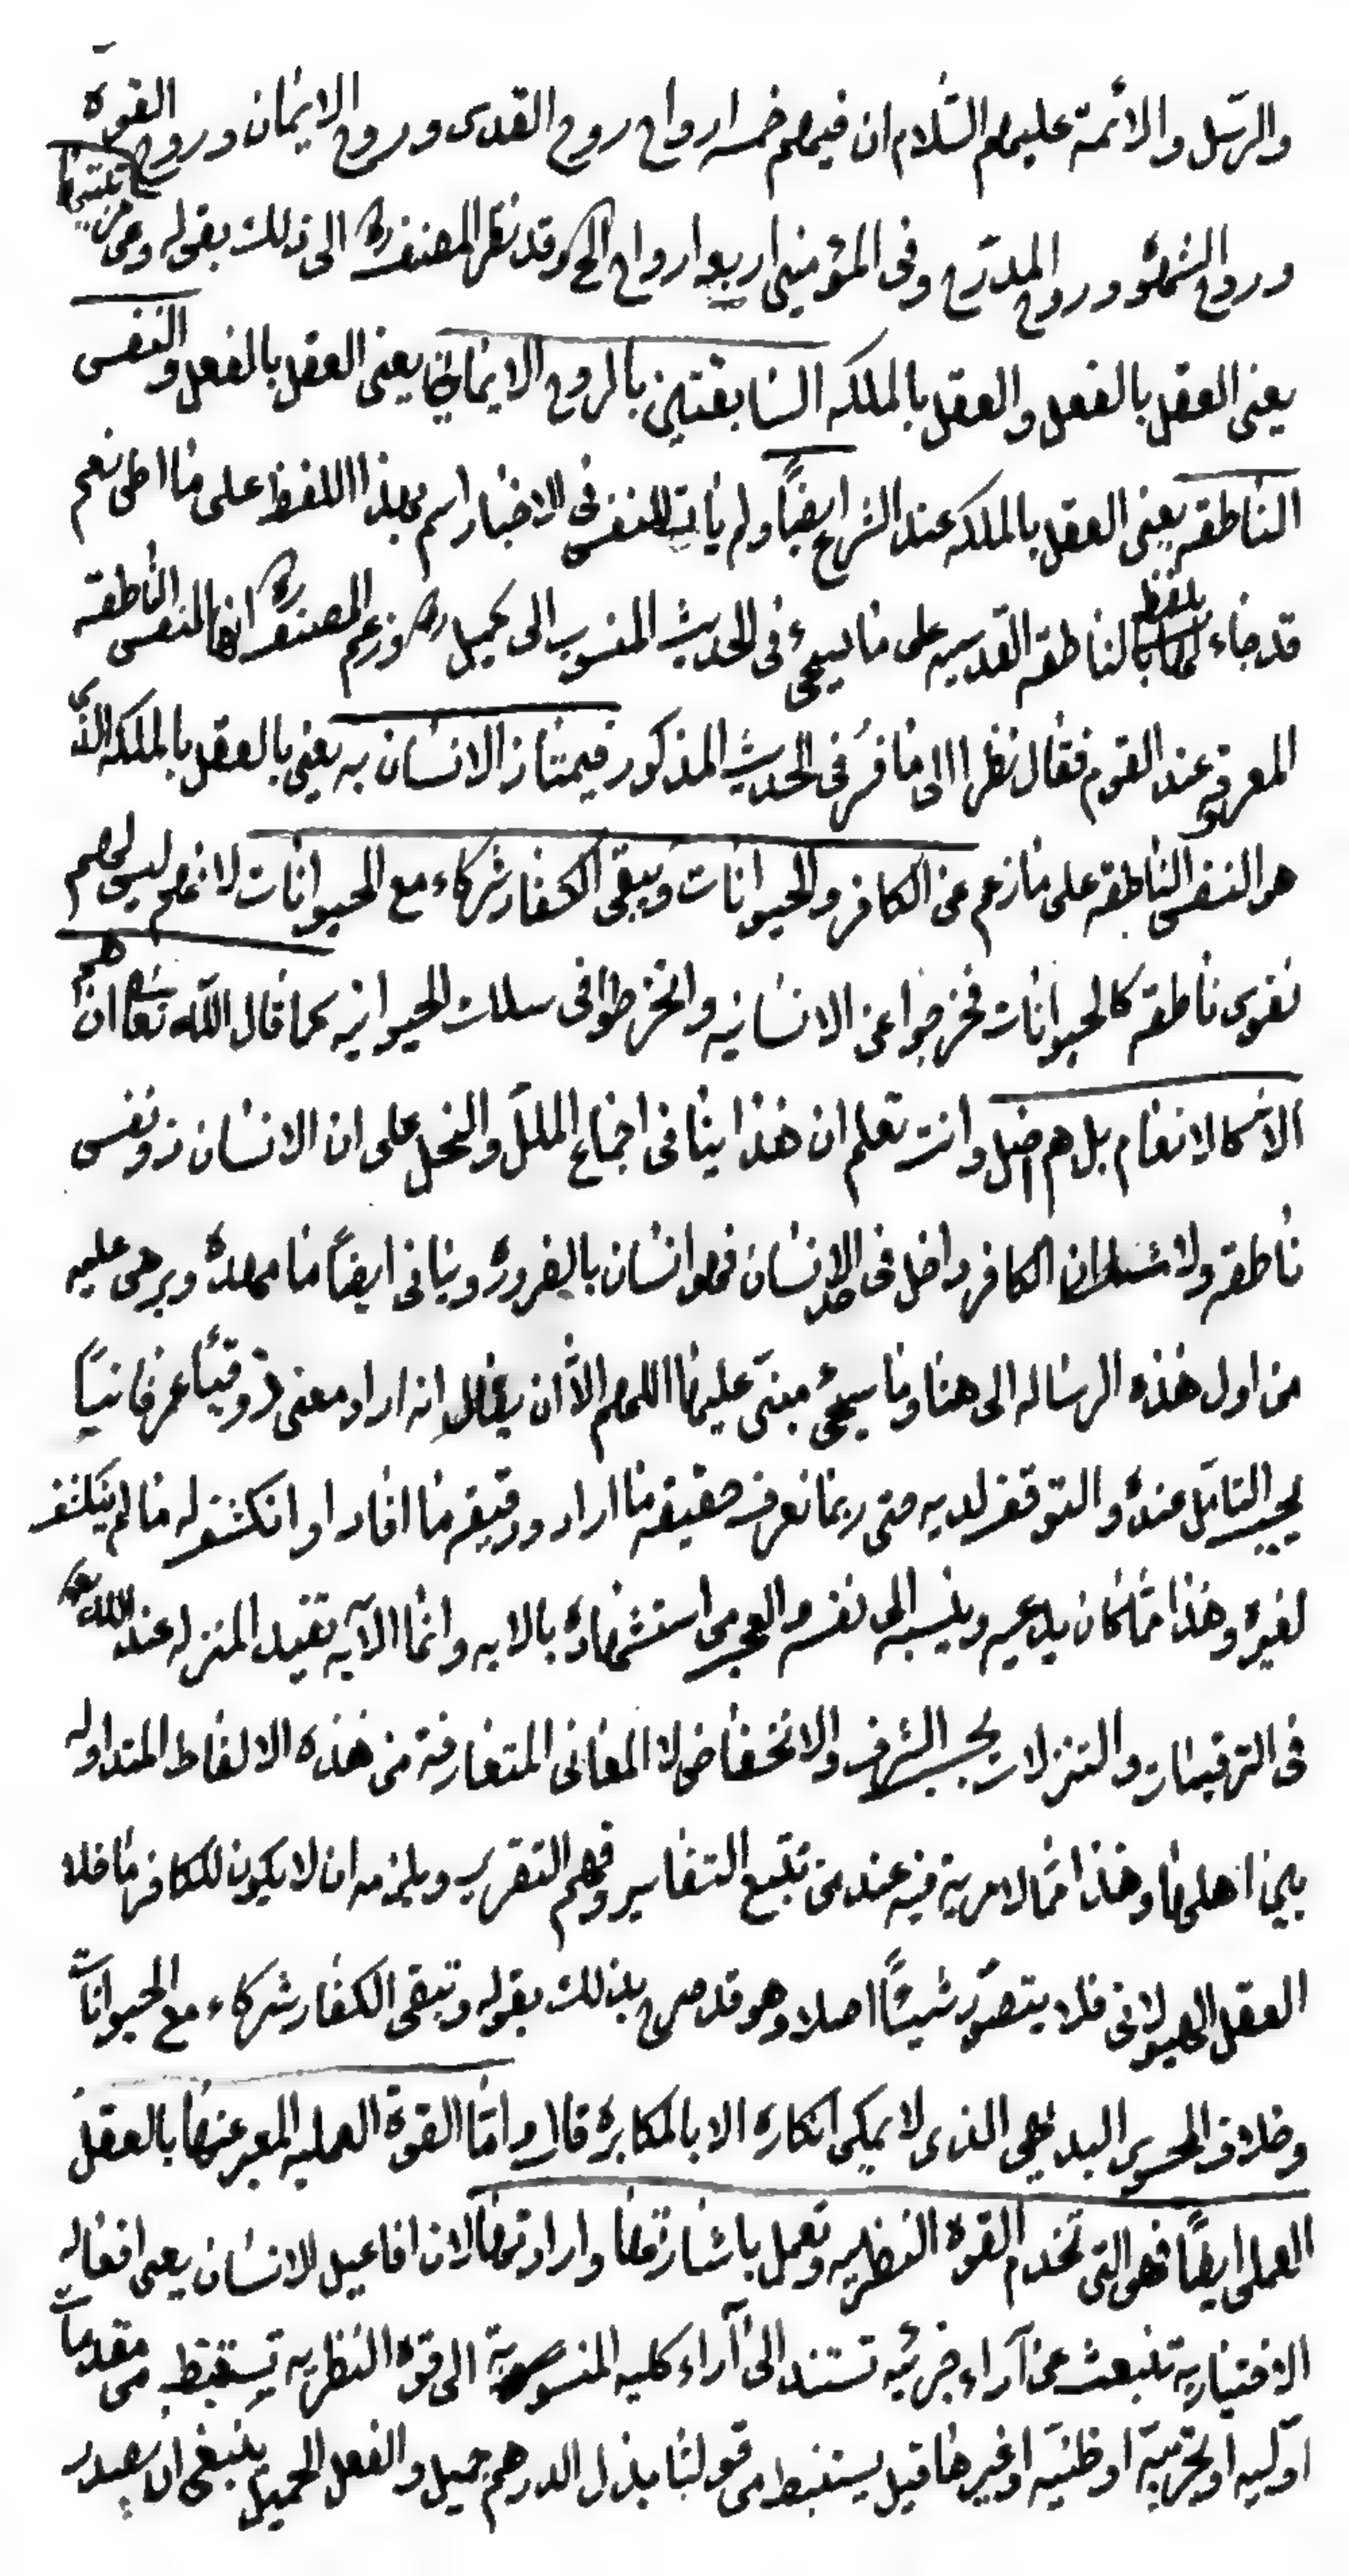 والرسل والائمة عليهم السّلام ان فيهم خمسه ارواح روح القدس وروح الايمان وروح القوة
وروح الشهوة وروح المدرج وفى المؤمنين اربعه ارواح الخ وقد نظر المصنف ره الى ذلك بقوله وهى مرتبتها
يعنى العقل بالفعل والعقل بالملكه السابقتين بالروح الايمانى يعنى العقل بالفعل والنفس
الناطقه يعنى العقل بالملكه عند الشرع ايضاً ولم يأت للنفس فى الاخبار اسم بهذا اللفظ على ما اطن نعم
قد جاء بلفظ الناطقه القدسيه على ما سيجىء فى الحديث المنسوب الى كميل ره وزعم المصنف ره انها النفس الناطقه
المعروفه عند القوم فقال نظرا الى ما فسر فى الحديث المذكور فيمتاز الانسان به يعنى بالعقل بالملكه الذى
هو النفس الناطقه على ما زعم عن الكافر والحيوانات ويبقى الكفار شركاء مع الحيوانات لانهم ليس لهم
نفوس ناطقه كالحيوانات فخرجوا عن الانسانيه وانخرطوا فى سلك الحيوانيه كما قال الله تعا ان هم
الا كالانعام بل هم اضل وانت تعلم ان هذا ينافى اجماع الملل والنحل على ان الانسان ذو نفس
ناطقه ولا شك ان الكافر داخل فى حد الانسان فهو انسان بالضروره وينافى ايضاً ما مهده وبرهن عليه
من اول هذه الرساله الى هنا وما سيجىء مبنى عليها اللهم الا ان يقال انه اراد معنى ذوقيّاً عرفانيّاً
يجب التامّل عنده والتوقف لديه حتى ربما نعرف حقيقه ما اراد ودقيقه ما افاد او انكشف له ما لم ينكشف
لغيره وهذا مما كان يدعيه وينسبه الى نفسه والعجب من استشهاده بالايه وانما الآيه تفيد المنزله عند الله تعا
فى الترقيات والتنزلات بحسب الشرف والانخفاض لا المعانى المتعارفة من هذه الالفاظ المتداوله
بين اهلها وهذا مما لا مرية فيه عند من تتبع التفاسير وفهم التقرير ويلزمه ان لا يكون للكافر ما خلا
العقل الهيولانى فلا يتصوّر شيئاً اصلا وهو قد صرح بذلك بقوله وتبقى الكفار شركاء مع الحيوانات
وخلاف المحسوس البديهى الذى لا يمكن انكاره الا بالمكابره قال واما القوة العمليه المعبر عنها بالعقل
العملى ايضاً فهو التى تخدم القوه النظريه وتعمل باشارتها وارادتها لان افاعيل الانسان يعنى افعاله
الاختياريه تنبعث عن آراء جزئيه تستند الى آراء كليه المنسوبة الى قوة النظريه تستنبط من مقدمات
اوليه او تجربيّة او ظنيّه او غيرها قيل يستنبط من قولنا بذل الدرهم جميل والفعل الجميل ينبغى ان يصدر